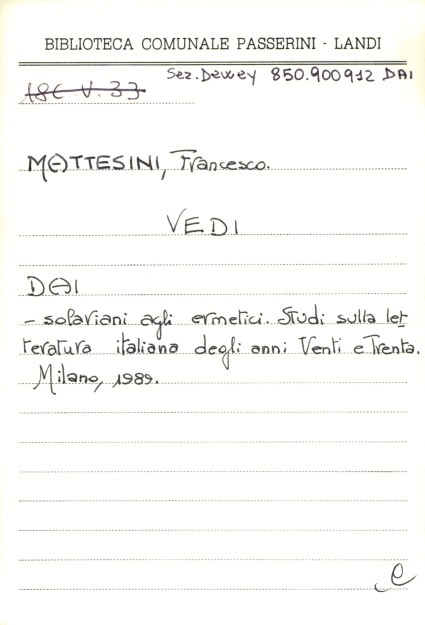 BIBLIOTECA COMUNALE PASSERINI - LANDI
Sez. Dewey 850.900912 DAI
18C V. 33
MATTESINI, Francesco.
VEDI
DAI
- solariani agli ermetici. Studi sulla let
teratura italiana degli anni Venti e Trenta.
Milano, 1989.
e